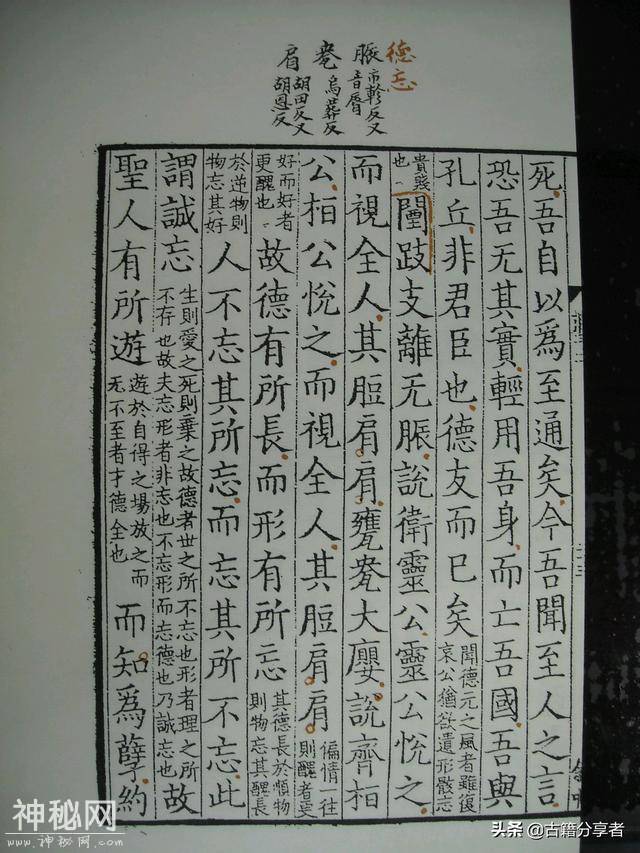 德忘
脤 市軫反又音脣
㼜 烏葬反
肩 胡田反又胡恩反
死。吾自以爲至通矣。今吾聞至人之言。
恐吾无其實。輕用吾身。而亡吾國。吾與
孔丘。非君臣也。德友而已矣聞德充之風者雖復哀公猶欲遺形骸忘
貴賤也闉跂支離无脤。說衛靈公。靈公悅之。
而視全人。其脰肩肩。甕㼜大癭。說齊桓
公。桓公悅之。而視全人。其脰肩肩。偏情一往則醜者更
好而好者更醜也故德有所長。而形有所忘其德長於順物則物忘其醜長
於逆物則物忘其好人不忘其所忘。而忘其所不忘。此
謂誠忘生則愛之死則棄之故德者世之所不忘也形者理之所不存也故夫忘形者非忘也不忘形而忘德也乃誠忘也故
聖人有所遊遊於自得之場放之而无不至者才德全也而知爲孽。約
神秘网
www.神秘网.com
头条 @古籍分享者